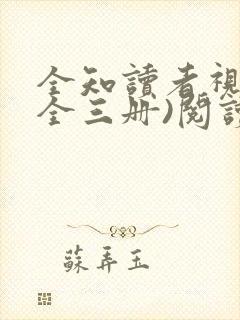 全知讀者視
全三册)閱讀
蘇弄玉